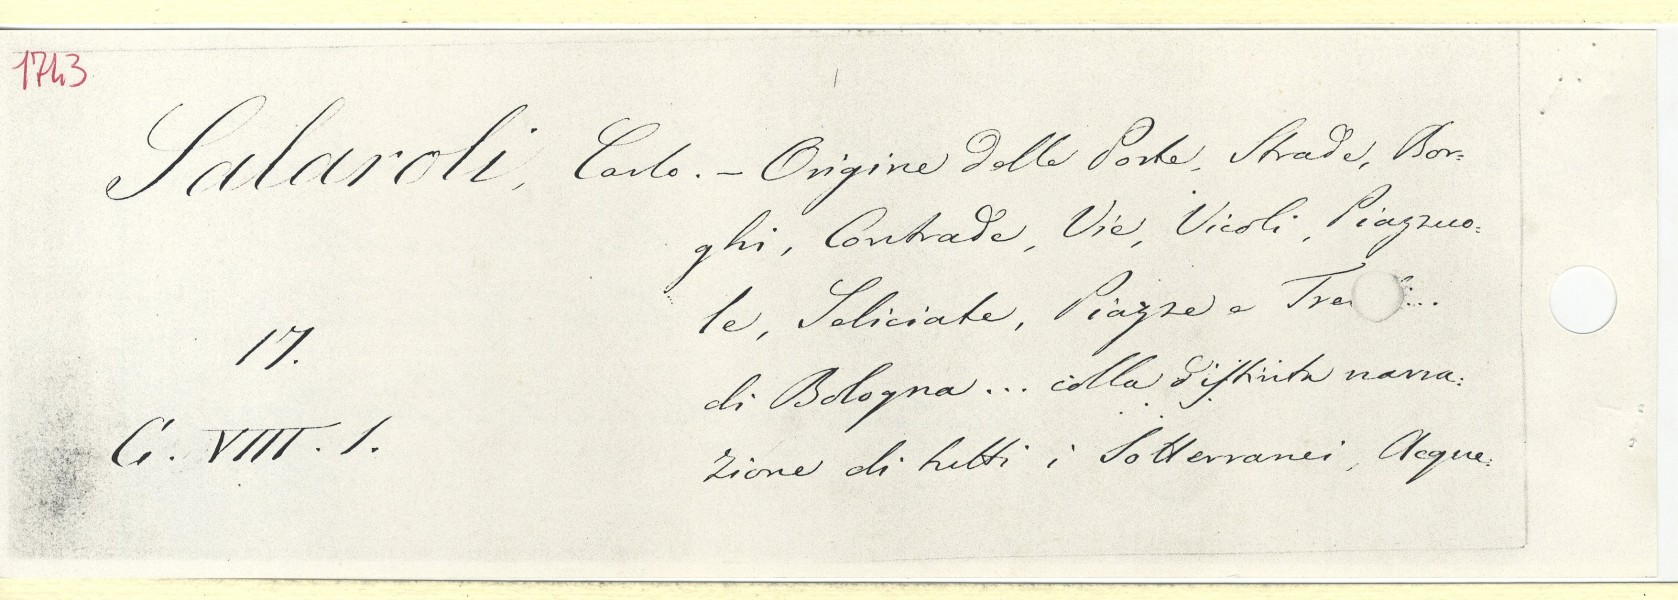 1743
Salaroli, Carlo. – Origine delle Porte, Strade, Bor=
ghi, Contrade, Vie, Vicoli, Piazzuo=
le, Seliciate, Piazze e
17.
di Bologna... colla distinta narra=
G. VIII. 1.
zione di tutti i Sotterranei, Acque=